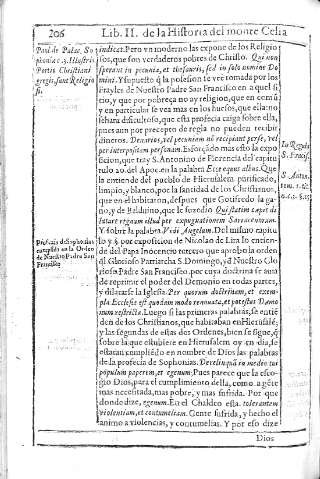 206
Lib. II. de la Historia del monte Celia
Paul de Palac. So
phonia c. 3. Illustris
Portio Christiani
gregis, sunt Religio
si.
indicat. Pero vn moderno las expone de los Religio
sos, que son verdaderos pobres de Christo. Qui non
sperant in pecunia, et thesauris, sed in solo nomine Do
mini. Y supuesto que la posesion se ve tomada por los
Frayles de Nuestro Padre San Francisco en aquel si
tio, y que por pobreça no ay religion, que en comũ
y en particular se vea mas en los huesos, que ella no
sera dificultoso, que esta profecia caiga sobre ella,
pues aun por precepto de regla no pueden recibir
dineros. Denarios, vel pecuniam nõ recipiant per se, vel
per interpositam personam. Esforçado mas esto la expo
sicion, que tray S. Antonino de Florencia del capitu
lo 20. del Apoc. en la palabra Ecce equus albus. Que
la entiende del pueblo de Hierusalem purificado,
limpio, y blanco, por la santidad de los Christianos,
que en el habitaron, despues que Gotifredo la ga-
no, y de Balduino, que le sucedio Qui statim cœpit di
latare regnum illud per expugnationem Sarracenorum.
Y sobre la palabra Vidi Angelum. Del mismo capitu
lo y §. por exposicion de Nicolao de Lira lo entien-
de del Papa Inocencio tercero que aprobò la orden
del Glorioso Patriarcha S. Domingo, y de Nuestro Glo
rioso Padre San Francisco, por cuya doctrina se auia
de reprimir el poder del Demonio en todas partes,
y dilatarse la Iglesia. Per quorum doctrinam, et exem-
pla Ecclesia est quodam modo renouata, et potestas Demo
num restricta. Luego si las primeras palabras, se entiē
den de los Christianos, que habitaban en Hierusalē;
y las segundas de estas dos Ordenes, bien se sigue, q̃
sobre la que estubiere en Hierusalem oy en dia, se
estaran cumpliēdo en nombre de Dios las palabras
de la profecia de Sophonias. Derelinquam in medio tui
populum pauperem, et egenum, Pues parece que la esco-
gio Dios, para el cumplimiento della, como a gēte
mas necesitada, mas pobre, y mas sufrida. Por que
donde dize, egenum. En el Chaldeo esta. tolerantem
violentiam, et contumeliam. Gente sufrida, y hecho el
animo a violencias, y contumelias. Y por eso dize
Dios
La Regla de
S. Francis.
S Anton.
tom. 1. tit.
Profecia de Sophonias
cumplida en la Orden
de Nuestro Padre San
Francisco